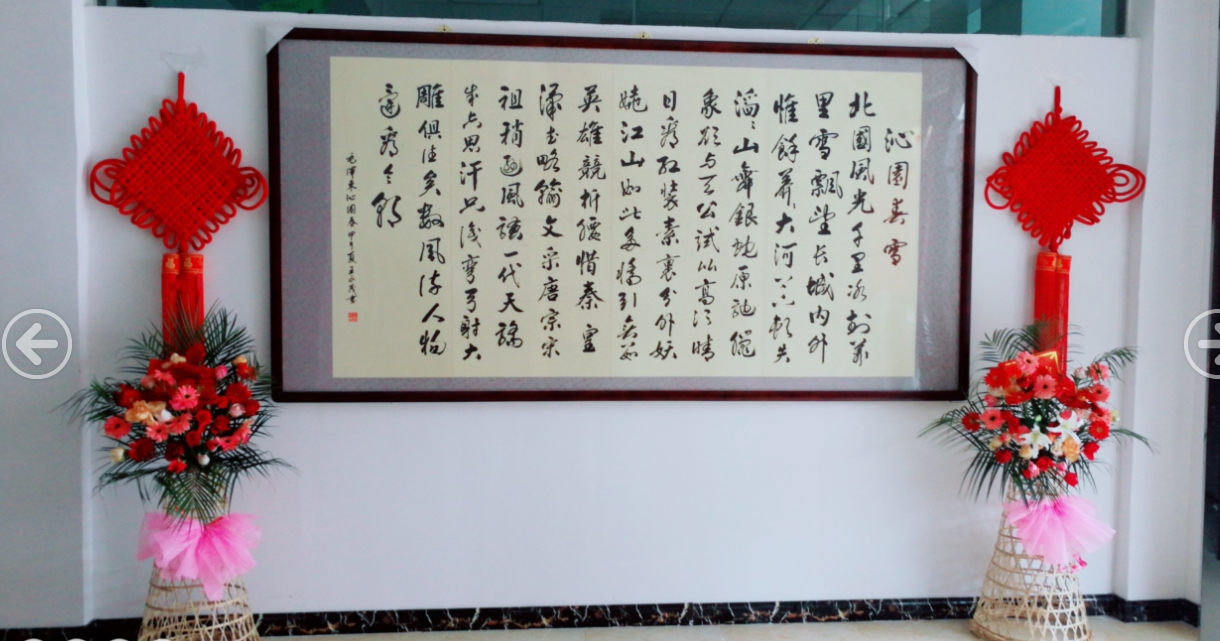 沁園春雪
北國風光千里冰封萬
里雪飄望长城内外
惟餘莽大河上下頓失
滔〻山舞銀蛇原馳蠟
象欲与天公試比高须晴
日看红装素裹分外妖
娆江山如此多嬌引無数
英雄競折腰惜秦皇
漢武略輸文采唐宗宋
祖稍遜風骚一代天骄
成吉思汗只識彎弓射大
雕俱往矣数風流人物
還看今朝
毛澤東沁園春
書